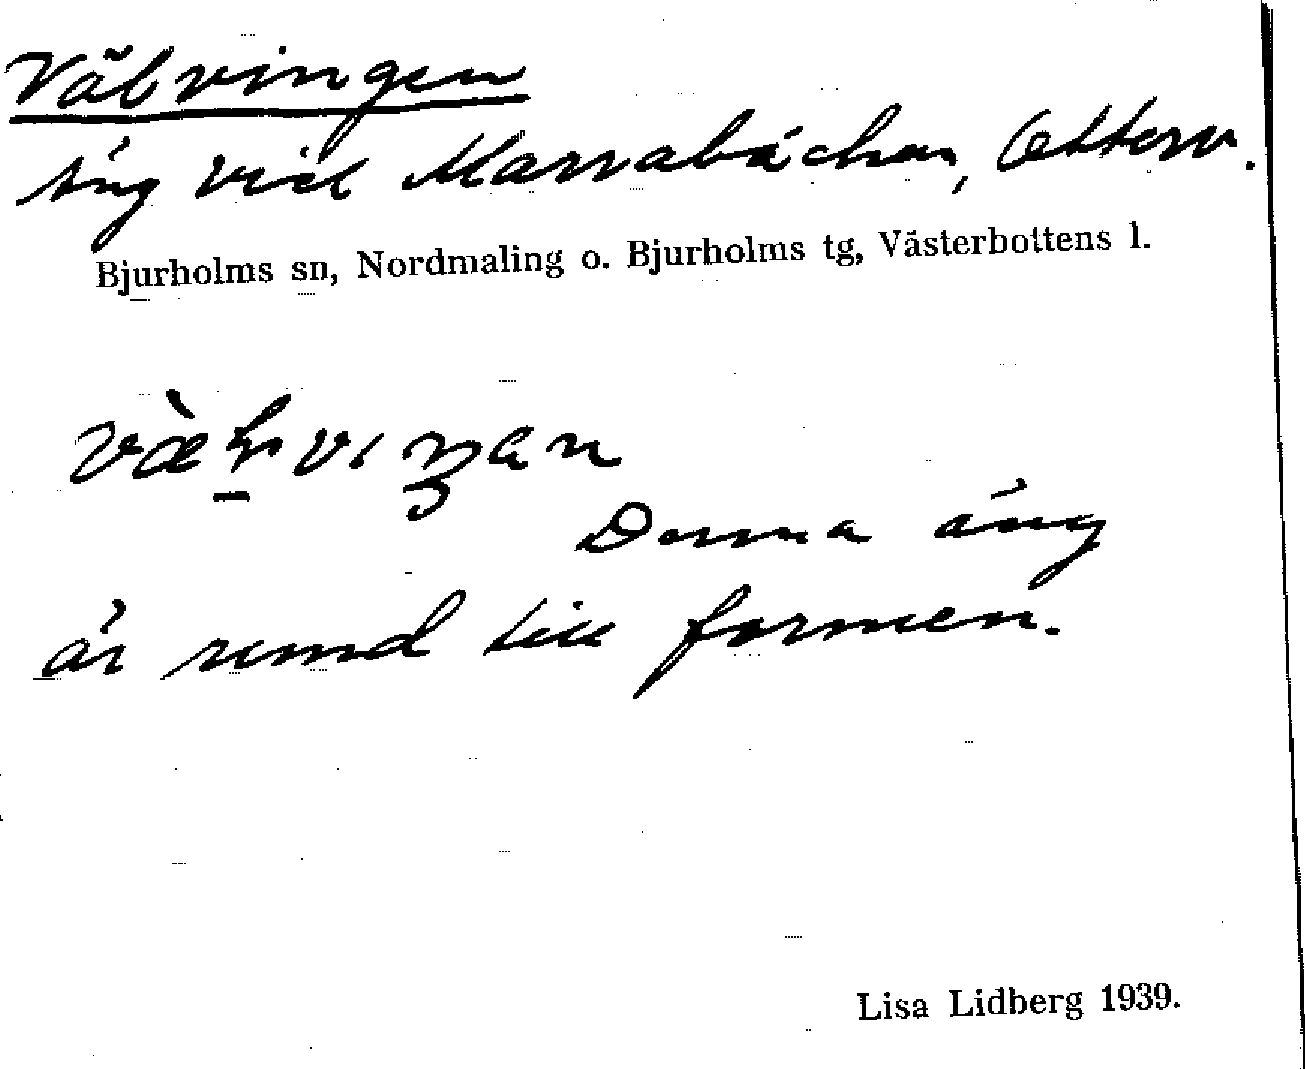 Välvingen
Äng vid Marrabäcken, Ottern.
Bjurholms sn, Nordmaling o. Bjurholms tg, Västerbottens l.
Denna äng
är rund till formen.
Lisa Lidberg 1939.